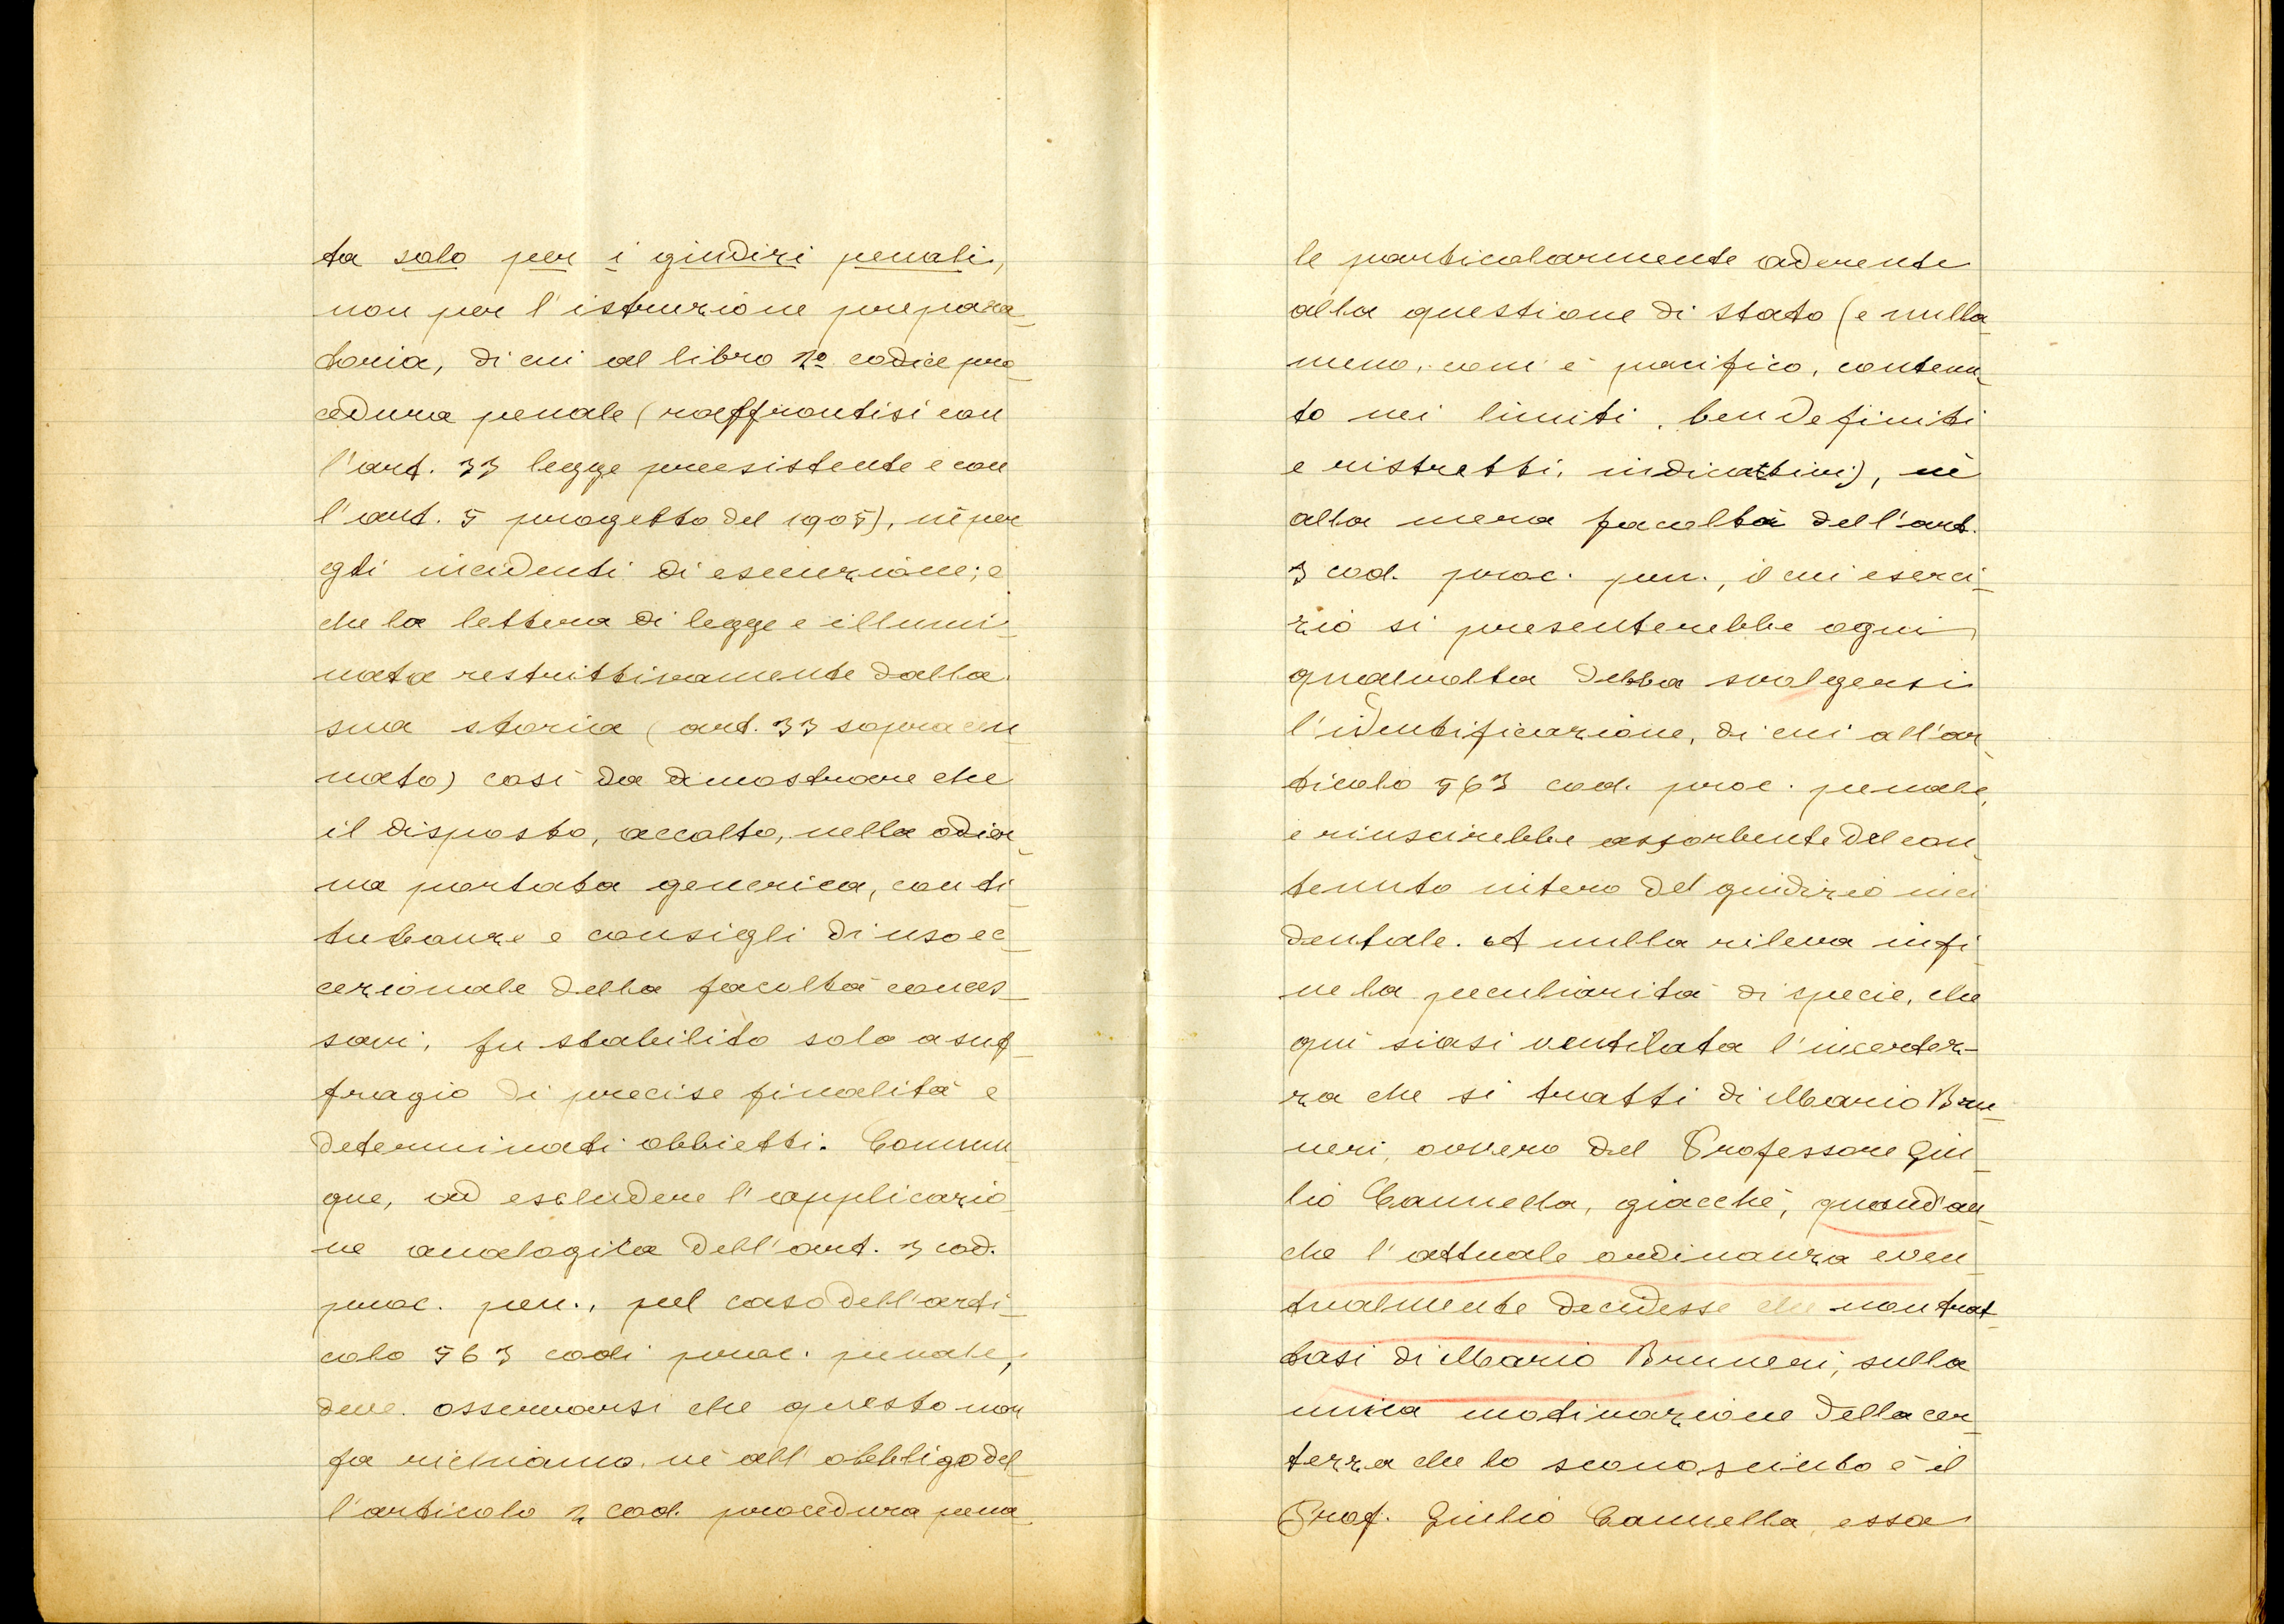 ta solo per i giudizi penali,
non per l'istruzione prepara-
toria, di cui al libro 2º codice pro-
cedura penale (raffrontisi con
l'art. 33 legge preesistente e con
l'art. 5 progetto del 1905), nè per
gli incidenti di esecuzione; e
che la lettera di legge è illumi-
nata restrittivamente dalla
sua storia (art. 33 sopra cen-
nato) così da dimostrare che
il disposto, accolto, nella odier-
na portata generica, con ti-
tubanze e consigli di uso ec-
cezionale della facoltà conces-
savi, fu stabilito solo a suf-
fragio di precise finalità e
determinati obbietti. Comun-
que, ad escludere l'applicazio-
ne analogica dell'art. 3 cod.
proc. pen., pel caso dell'arti-
colo 563 codi proc. penale,
deve osservarsi che questo non
fa richiamo nè all'obbligo del-
l'articolo 2 cod. procedura pena-
le particolarmente aderente
alla questione di stato (e nulla-
meno, com'è pacifico, contenu-
to nei limiti, ben definiti
e ristretti, indicativi), nè
alla mera facoltà dell'art.
3 cod. proc. pen., il cui eserci-
zio si presenterebbe ogni
qualvolta debba svolgersi
l'identificazione, di cui all'ar-
ticolo 563 cod. proc. penale,
e riuscirebbe assorbente del con-
tenuto intero del giudizio inci-
dentale. A nulla rileva infi-
ne la peculiarità di specie, che
qui siasi ventilata l'incertez-
za che si tratti di Mario Bru-
neri, ovvero del Professore Giu-
lio Cannella, giacchè, quand'an-
che l'attuale ordinanza even-
tualmente decidesse che non trat-
tasi di Mario Bruneri, sulla
unica motivazione della cer-
tezza che lo sconosciuto è il
Prof. Giulio Cannella, essa